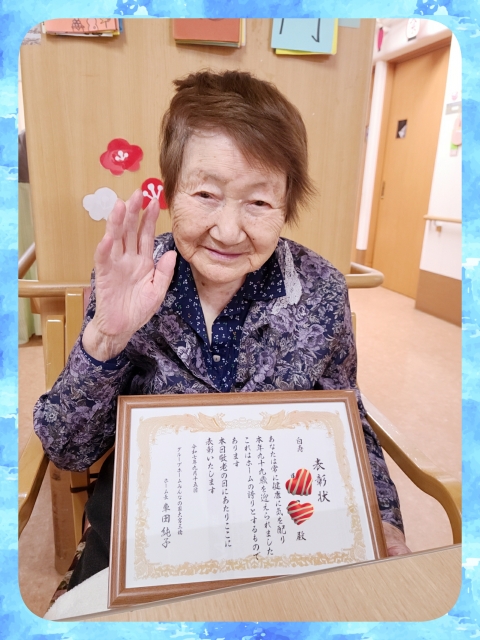 表彰状
白寿
殿
あなたは常に健康に気を配り
本年九十九歳を迎えられました
これはホームの誇りとするもので
あります
本日敬老の日にあたりここに
表彰いたします
令和七年九月十五日
ホーム長 栗田純子